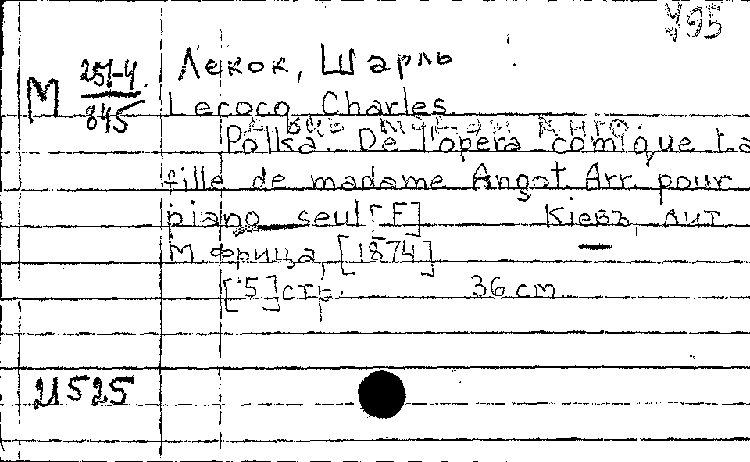 У95
М 251-4 Лекок, Шарль
845 Lecocq, Charles
Polka. De l'opera comique La
fille de madame Angot. Arr. pour
piano seul [F] Кіевъ, лит.
М Фрица, [1874]
[5] стр. 36 cm
21525